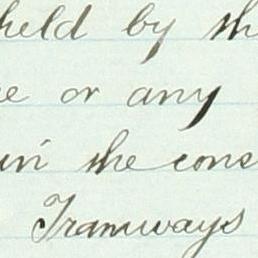 held by th
e or any
in the cons
Tramways